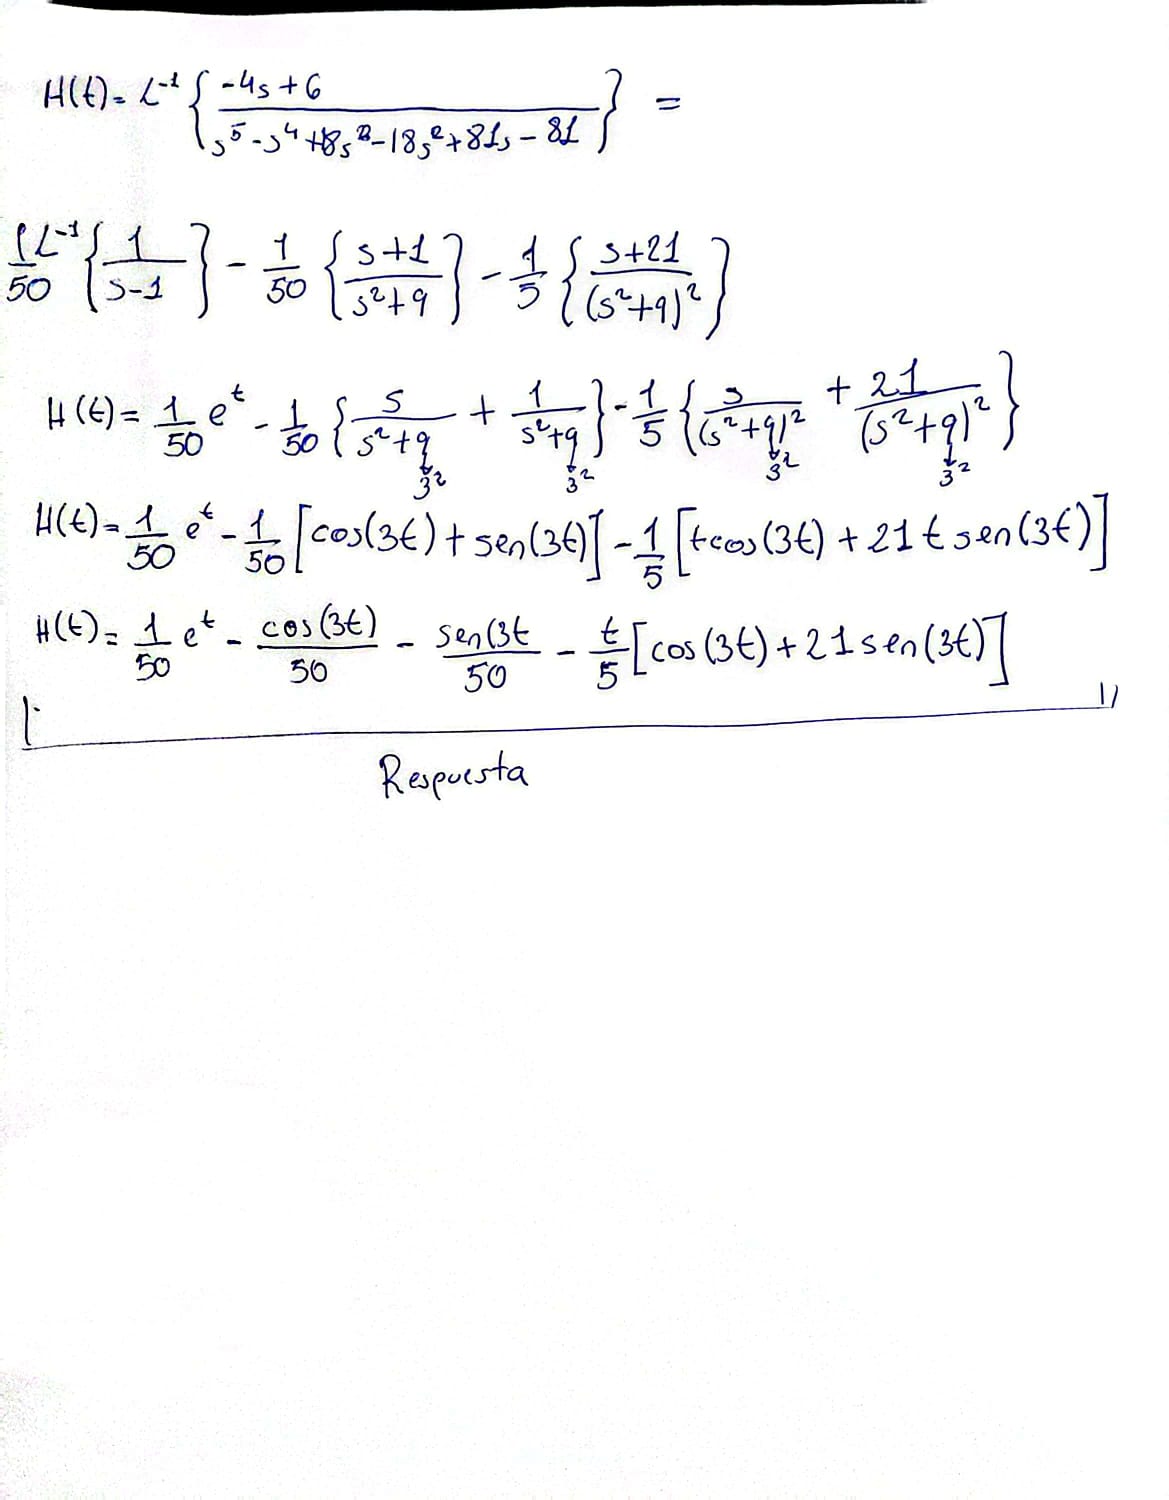 H(t) = L⁻¹ { (-4s + 6) / (s⁵ - s⁴ + 18s³ - 18s² + 81s - 81) } =
1/50 L⁻¹ { 1 / (s-1) } - 1/50 { (s+1) / (s²+9) } - 1/5 { (s+21) / (s²+9)² }
H(t) = 1/50 eᵗ - 1/50 { s / (s²+9) + 1 / (s²+9) } - 1/5 { s / (s²+9)² + 21 / (s²+9)² }
3² 3² 3² 3²
H(t) = 1/50 eᵗ - 1/50 [cos(3t) + sen(3t)] - 1/5 [tcos(3t) + 21 t sen(3t)]
H(t) = 1/50 eᵗ - cos(3t)/50 - sen(3t/50 - t/5 [cos(3t) + 21 sen(3t)]
Respuesta